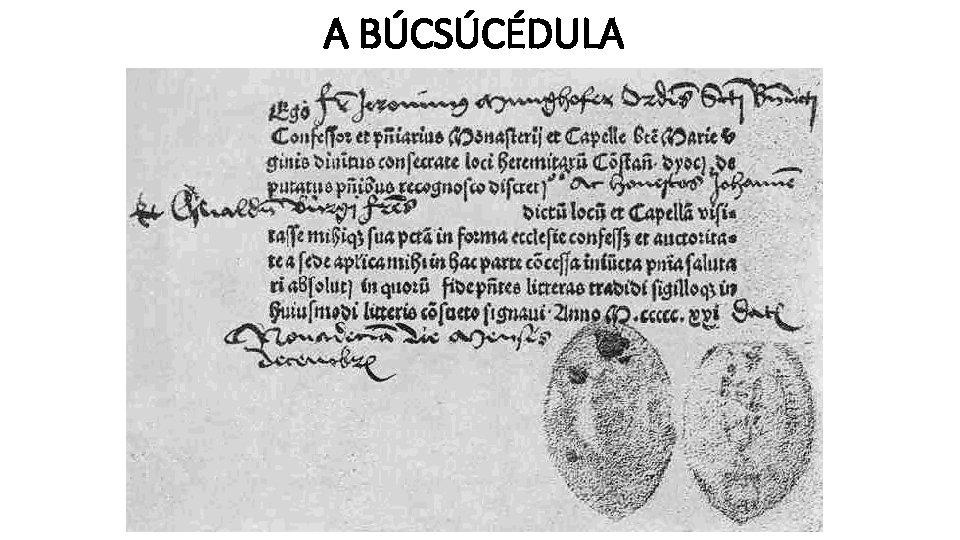 A BÚCSÚCÉDULA
Ego fr̄ Jeronimus Munghofer Ordis̄ Scti
Confessor et pn̄iarius Monasterij et Capelle btē Marie v
ginis diuinitus consecrate loci heremitarū Cōstan̄. dyoc; de
putatus pn̄ibus recognosco discret Ac honestos Johannē
et Oswaldū frēs dictū locū et Capellā visi-
tasse mihiq; sua pctā in forma ecclesie confess; et auctorita-
te a sede aplica mihi in hac parte cōcessa iniūcta pn̄ia saluta
ri absolut; in quorū fidē pn̄tes litteras tradidi sigilloq; in
huiusmodi litteris cōsueto signaui. Anno M.ccccc.xxi Dat
die Mensis
decembr